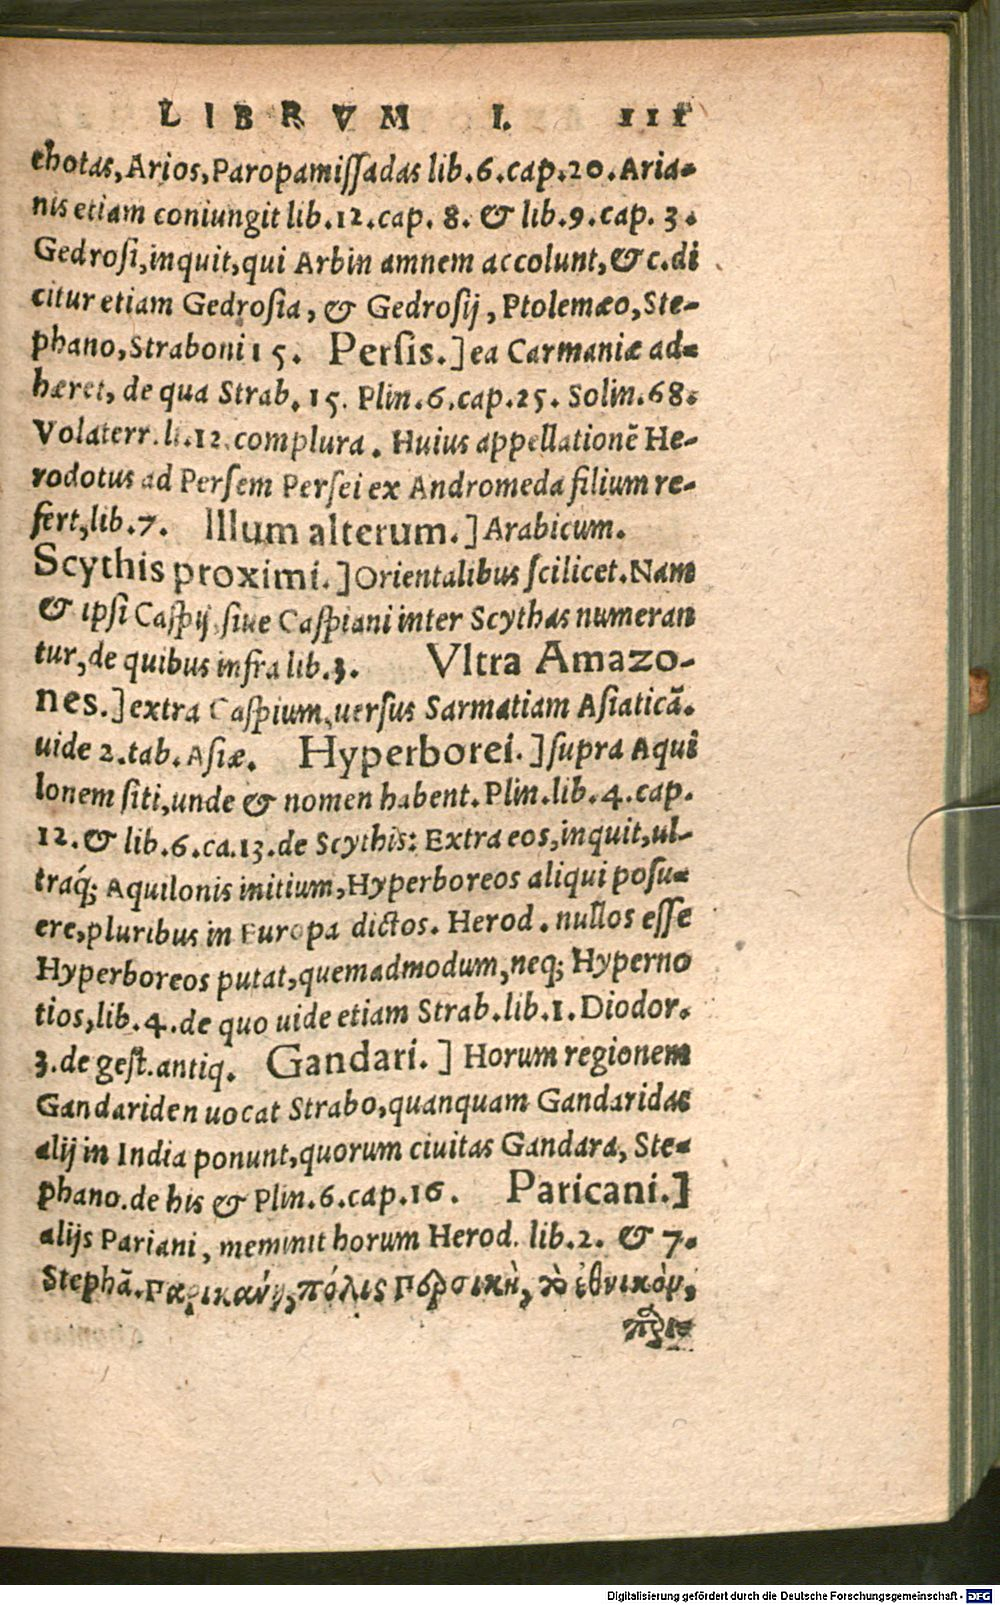 LIBRVM I. 111
chotas, Arios, Paropamissadas lib.6.cap.20. Aria-
nis etiam coniungit lib.12.cap. 8. & lib.9.cap. 3.
Gedrosi, inquit, qui Arbin amnem accolunt, &c. di
citur etiam Gedrosia, & Gedrosij, Ptolemæo, Ste-
phano, Straboni 15. Persis.] ea Carmaniæ ad-
hæret, de qua Strab. 15. Plin.6.cap.25. Solin.68.
Volaterr. li.12. complura. Huius appellationē He-
rodotus ad Persem Persei ex Andromeda filium re-
fert, lib.7. Illum alterum.] Arabicum.
Scythis proximi.] Orientalibus scilicet. Nam
& ipsi Caspij, siue Caspiani inter Scythas numeran
tur, de quibus infra lib.3. Vltra Amazo-
nes.] extra Caspium, uersus Sarmatiam Asiaticā.
uide 2.tab. Asiæ. Hyperborei.] supra Aqui
lonem siti, unde & nomen habent. Plin.lib.4.cap.
12. & lib.6.ca.13.de Scythis: Extra eos, inquit, ul-
traq́; Aquilonis initium, Hyperboreos aliqui posu-
ere, pluribus in Europa dictos. Herod. nullos esse
Hyperboreos putat, quemadmodum, neq; Hyperno
tios, lib.4.de quo uide etiam Strab.lib.1. Diodor.
3.de gest.antiq. Gandari.] Horum regionem
Gandariden uocat Strabo, quanquam Gandaridas
alij in India ponunt, quorum ciuitas Gandara, Ste-
phano. de his & Plin.6.cap.16. Paricani.]
alijs Pariani, meminit horum Herod. lib.2. & 7.
Stephā. Παρικανὴ, πόλις Περσικὴ, τὸ ἐθνικὸν,
Digitalisierung gefördert durch die Deutsche Forschungsgemeinschaft - DFG